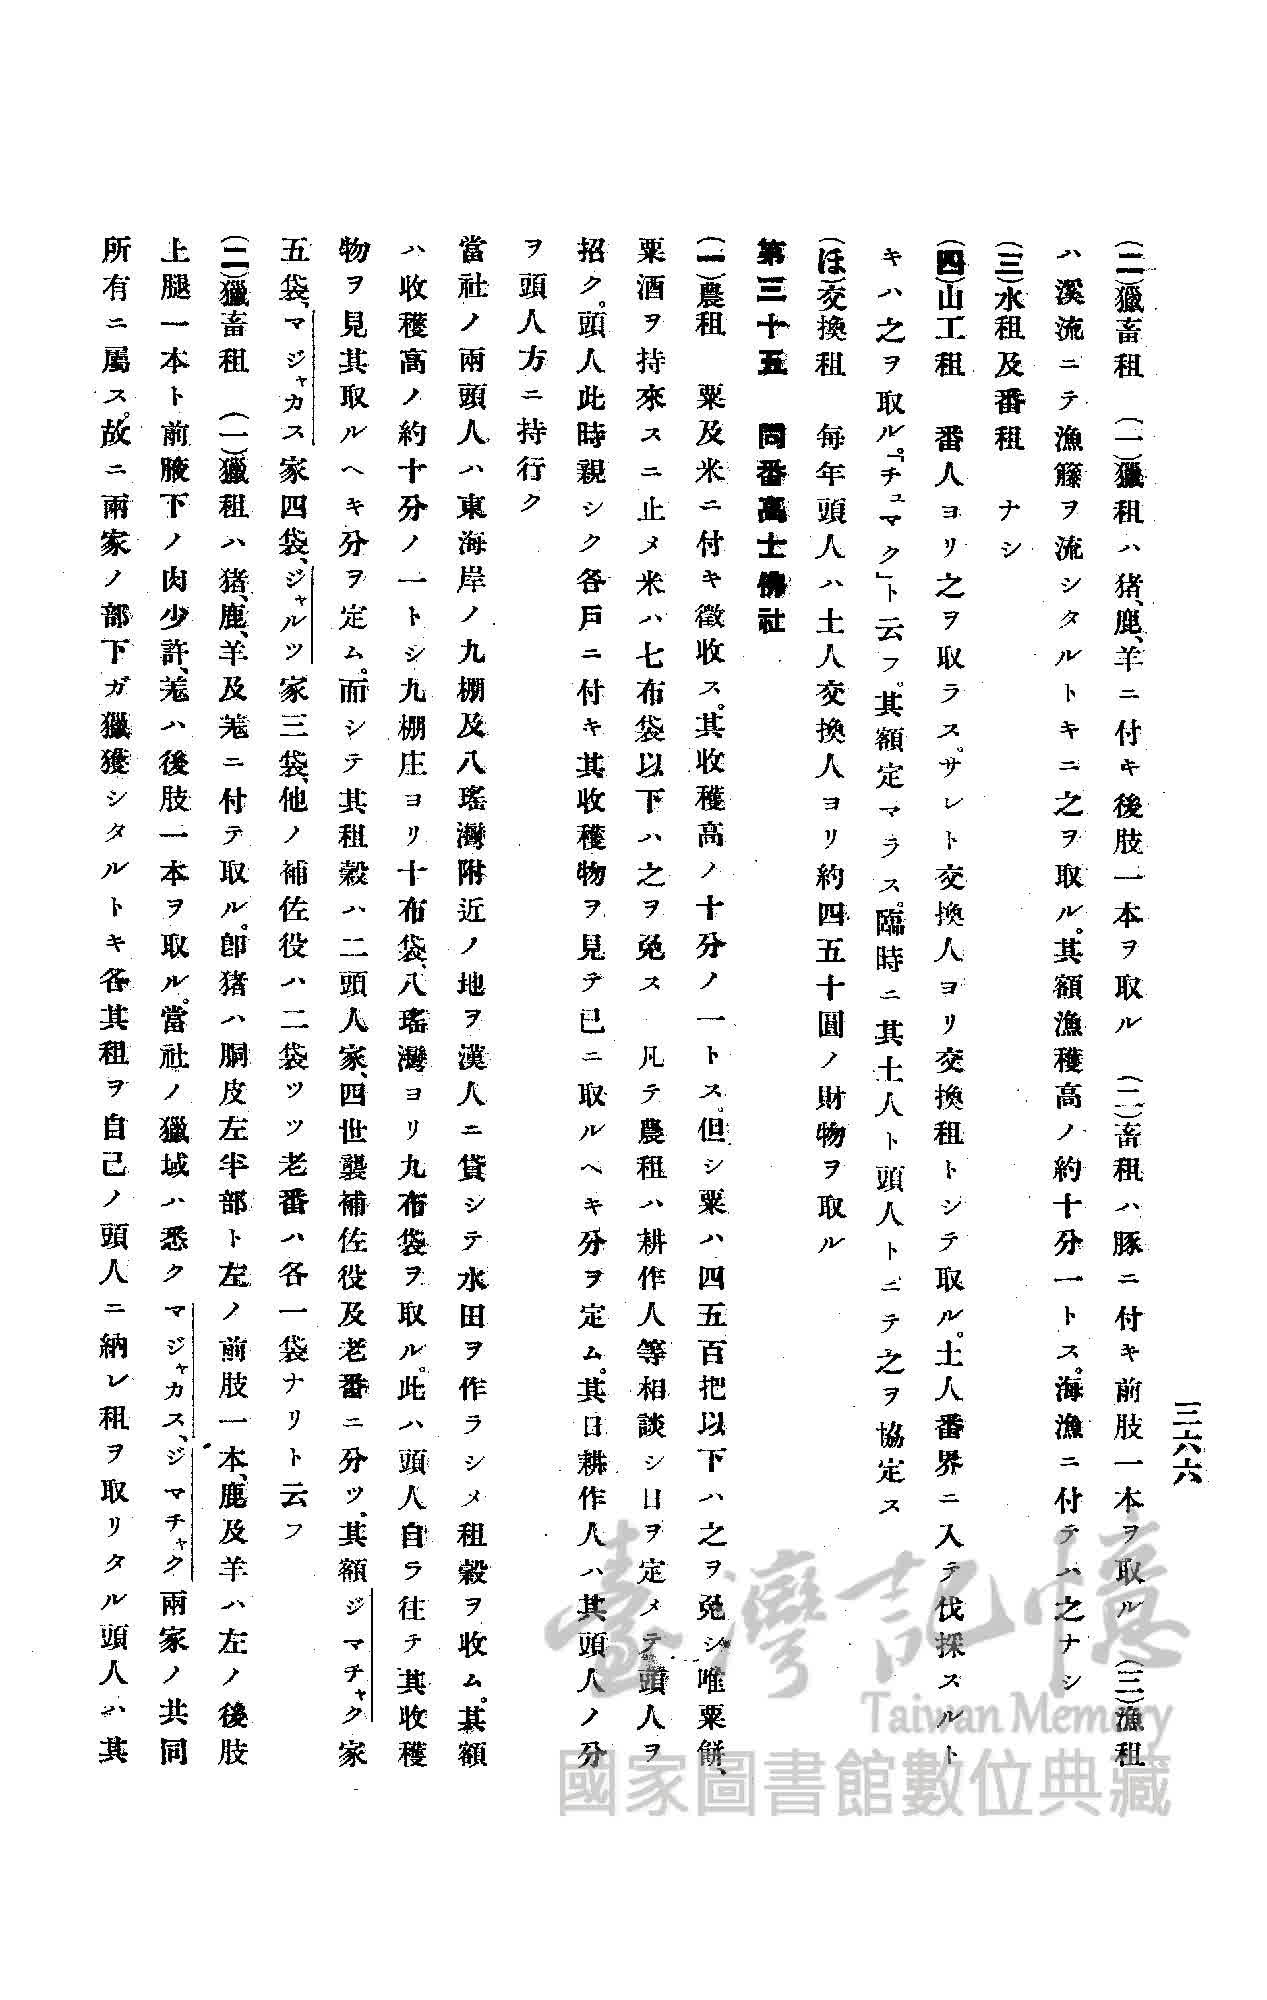 三六六
(二)獵畜租　(一)獵租ハ猪、鹿、羊ニ付キ後肢一本ヲ取ル　(二)畜租ハ豚ニ付キ前肢一本ヲ取ル　(三)漁租
ハ溪流ニテ漁籐ヲ流シタルトキニ之ヲ取ル。其額漁穫高ノ約十分一トス。海漁ニ付テハ之ナシ
(三)水租及番租　ナシ
(四)山工租　番人ヨリ之ヲ取ラス。サレト交換人ヨリ交換租トシテ取ル。土人番界ニ入テ伐採スルト
キハ之ヲ取ル。「チュマク」ト云フ。其額定マラス。臨時ニ其土人ト頭人トニテ之ヲ協定ス
(ほ)交換租　每年頭人ハ土人交換人ヨリ約四五十圓ノ財物ヲ取ル
第三十五　同番高士佛社
(一)農租　粟及米ニ付キ徵收ス。其收穫高ノ十分ノ一トス。但シ粟ハ四五百把以下ハ之ヲ免シ唯粟餅、
粟酒ヲ持來スニ止メ米ハ七布袋以下ハ之ヲ免ス　凡テ農租ハ耕作人等相談シ日ヲ定メテ頭人ヲ
招ク。頭人此時親シク各戶ニ付キ其收穫物ヲ見テ已ニ取ルヘキ分ヲ定ム。其日耕作人ハ其頭人ノ分
ヲ頭人方ニ持行ク
當社ノ兩頭人ハ東海岸ノ九棚及八瑤灣附近ノ地ヲ漢人ニ貸シテ水田ヲ作ラシメ租穀ヲ收ム。其額
ハ收穫高ノ約十分ノ一トシ九棚庄ヨリ十布袋、八瑤灣ヨリ九布袋ヲ取ル。此ハ頭人自ラ往テ其收穫
物ヲ見其取ルヘキ分ヲ定ム。而シテ其租穀ハ二頭人家、四世襲補佐役及老番ニ分ツ。其額ジマチャク家
五袋、マジャカス家四袋、ジャルツ家三袋、他ノ補佐役ハ二袋ツツ老番ハ各一袋ナリト云フ
(二)獵畜租　(一)獵租ハ猪、鹿、羊及羗ニ付テ取ル。卽猪ハ胴皮左半部ト左ノ前肢一本、鹿及羊ハ左ノ後肢
上腿一本ト前腋下ノ肉少許、羗ハ後肢一本ヲ取ル。當社ノ獵域ハ悉クマジャカス、ジマチャク兩家ノ共同
所有ニ屬ス。故ニ兩家ノ部下ガ獵獲シタルトキ各其租ヲ自己ノ頭人ニ納レ租ヲ取リタル頭人ハ其
臺灣記憶
Taiwan Memory
國家圖書館數位典藏